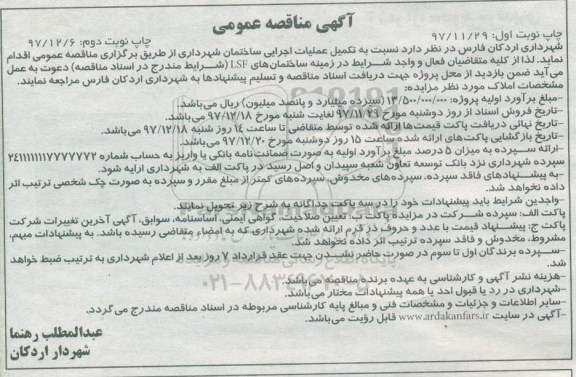 آگهی مناقصه عمومی
چاپ نوبت اول: ۹۷/۱۱/۲۹
چاپ نوبت دوم: ۹۷/۱۲/۶
شهرداری اردکان فارس در نظر دارد نسبت به تکمیل عملیات اجرایی ساختمان شهرداری از طریق برگزاری مناقصه عمومی اقدام
نماید. لذا از کلیه متقاضیان فعال و واجد شرایط در زمینه ساختمان‌های LSF (شرایط مندرج در اسناد مناقصه) دعوت به عمل
می‌آید ضمن بازدید از محل پروژه جهت دریافت اسناد مناقصه و تسلیم پیشنهادها به شهرداری اردکان فارس مراجعه نمایند.
مشخصات املاک مورد نظر مزایده:
-مبلغ برآورد اولیه پروژه: ۱۳/۵۰۰/۰۰۰/۰۰۰ (سیزده میلیارد و پانصد میلیون) ریال می‌باشد.
-تاریخ فروش اسناد از روز دوشنبه مورخ ۹۷/۱۱/۲۹ لغایت شنبه مورخ ۹۷/۱۲/۱۸ می‌باشد.
-تاریخ نهائی دریافت پاکت قیمت‌ها ارائه شده توسط متقاضی تا ساعت ۱۴ روز شنبه ۹۷/۱۲/۱۸ می‌باشد.
-تاریخ بازگشایی پاکت‌های ارائه شده ساعت ۱۵ روز دوشنبه مورخ ۹۷/۱۲/۲۰ می‌باشد.
-ارائه سپرده به میزان ۵ درصد مبلغ برآورد اولیه به صورت ضمانت‌نامه بانکی یا واریز به حساب شماره
سپرده شهرداری نزد بانک توسعه تعاون شعبه سپیدان و اصل رسید در پاکت الف به شهرداری ارایه شود.
-به پیشنهادهای فاقد سپرده، سپرده‌های مخدوش، سپرده‌های کمتر از مبلغ مقرر و سپرده به صورت چک شخصی ترتیب اثر
داده نخواهد شد.
-واجدین شرایط باید پیشنهادات خود را در سه پاکت جداگانه به شرح زیر تحویل نمایند.
پاکت الف: سپرده شرکت در مزایده پاکت ب: تعیین صلاحیت، گواهی ایمنی، اساسنامه، سوابق، آگهی آخرین تغییرات شرکت
پاکت ج: پیشنهاد قیمت با عدد و حروف در فرم ارائه شده شهرداری که به امضاء متقاضی رسیده باشد. به پیشنهادات مبهم،
مشروط، مخدوش و فاقد سپرده ترتیب اثر داده نخواهد شد.
-سپرده برندگان اول تا سوم در صورت حاضر نشدن جهت عقد قرارداد ۷ روز بعد از اعلام شهرداری به ترتیب ضبط خواهد
شد.
-هزینه نشر آگهی و کارشناسی به عهده برنده مناقصه می‌باشد.
-شهرداری در رد یا قبول احد یا همه پیشنهادات مختار می‌باشد.
-سایر اطلاعات و جزئیات و مشخصات فنی و مبالغ پایه کارشناسی مربوطه در اسناد مناقصه مندرج می‌گردد.
-آگهی در سایت www.ardakanfars.ir قابل رؤیت می‌باشد.
عبدالمطلب رهنما
شهردار اردکان